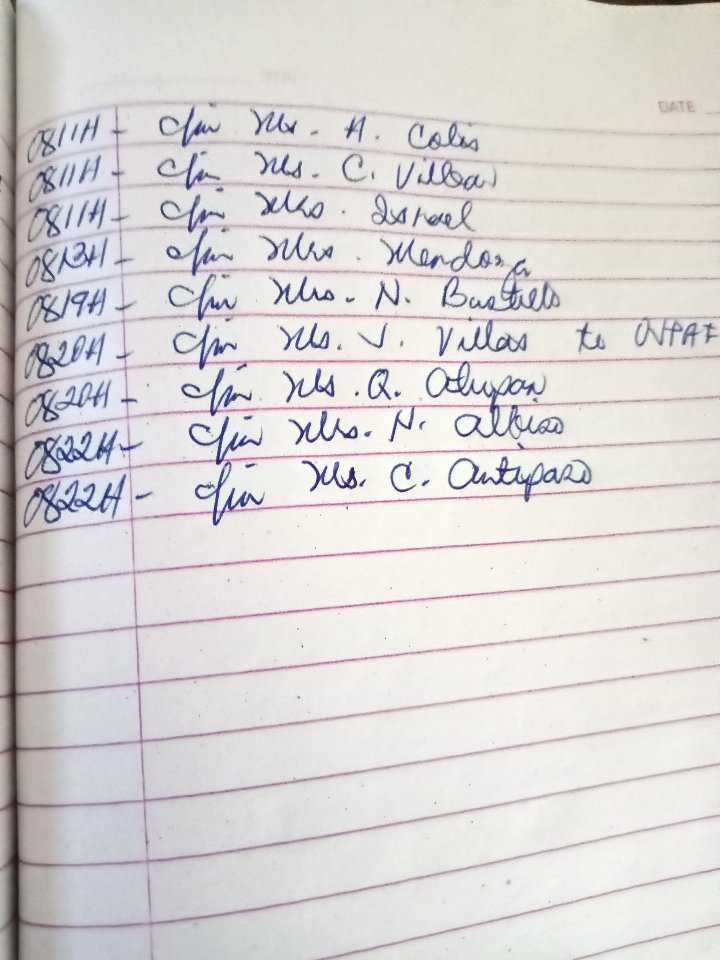 DATE
0811H - c/in Ms. A. Colis
0811H - c/in Ms. C. Villbar
0811H - c/in Mrs. Israel
0813H - c/in Mrs. Mendoza
0819H - c/in Mrs. N. Bustillo
0820H - c/in Ms. J. Villas to
0820H - c/in Ms. Q.
0822H - c/in Mrs. N. Albiso
0822H - c/in Ms. C. Antipaso